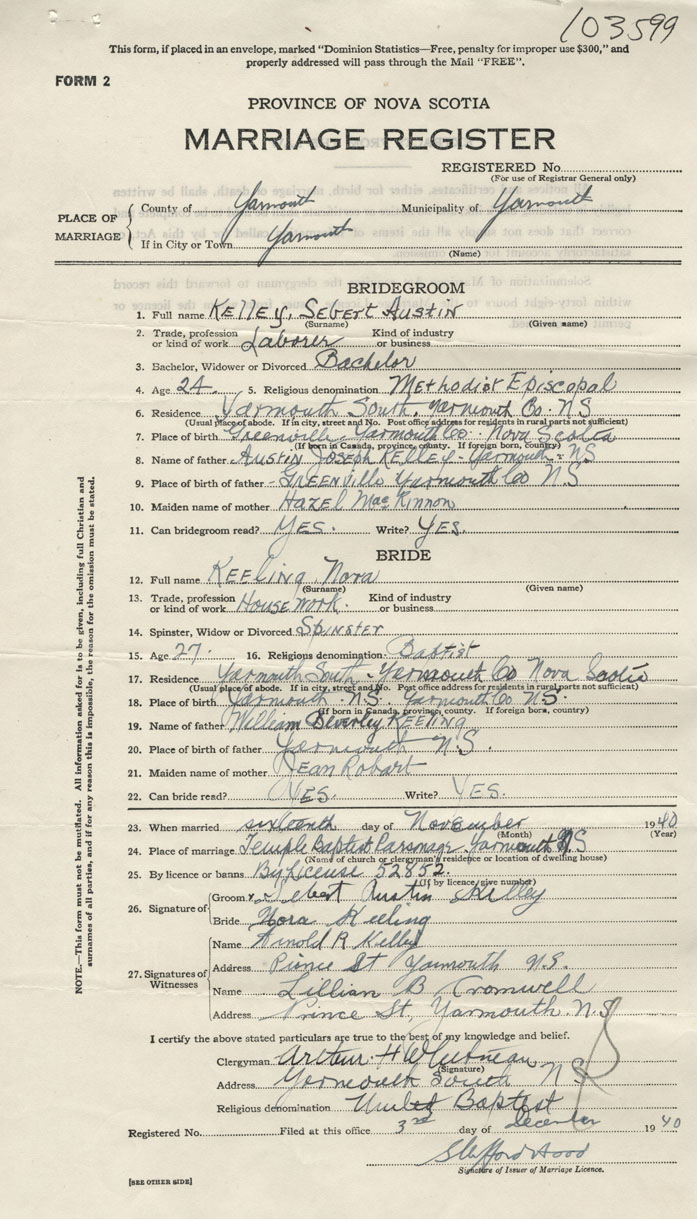 103599
This form, if placed in an envelope, marked "Dominion Statistics—Free, penalty for improper use $300," and
properly addressed will pass through the Mail "FREE".
FORM 2
PROVINCE OF NOVA SCOTIA
MARRIAGE REGISTER
REGISTERED No.
(For use of Registrar General only)
PLACE OF MARRIAGE
County of Yarmouth Municipality of Yarmouth
If in City or Town Yarmouth
(Name)
BRIDEGROOM
1. Full name KELLEY, Sebert Austin
(Surname) (Given name)
2. Trade, profession or kind of work Laborer Kind of industry or business
3. Bachelor, Widower or Divorced Bachelor
4. Age 24 5. Religious denomination Methodist Episcopal
6. Residence Yarmouth South, Yarmouth Co. NS
(Usual place of abode. If in city, street and No. Post office address for residents in rural parts not sufficient)
7. Place of birth Greenville Yarmouth Co. Nova Scotia
(If born in Canada, province, county. If foreign born, country)
8. Name of father AUSTIN JOSEPH KELLEY - Yarmouth - NS
9. Place of birth of father - GREENVille Yarmouth Co NS
10. Maiden name of mother HAZEL MacKinnon
11. Can bridegroom read? YES. Write? YES.
BRIDE
12. Full name KEELING Nora
(Surname) (Given name)
13. Trade, profession or kind of work House work. Kind of industry or business
14. Spinster, Widow or Divorced SPINSTER
15. Age 27. 16. Religious denomination Baptist
17. Residence Yarmouth South - Yarmouth Co Nova Scotia
(Usual place of abode. If in city, street and No. Post office address for residents in rural parts not sufficient)
18. Place of birth Yarmouth N.S. Yarmouth Co N.S.
(If born in Canada, province, county. If foreign born, country)
19. Name of father William Beverley KEELING
20. Place of birth of father Yarmouth N.S.
21. Maiden name of mother Robart
22. Can bride read? YES. Write? YES.
23. When married sixteenth day of November 1940
(Month) (Year)
24. Place of marriage Temple Baptist Parsonage Yarmouth NS
(Name of church or clergyman's residence or location of dwelling house)
25. By licence or banns By License 52852.
(If by licence, give number)
26. Signature of
Groom x Sebert Austin Kelley
Bride Nora Keeling
27. Signatures of Witnesses
Name Arnold R Kelley
Address St Yarmouth N.S.
Name Lillian B Cromwell
Address Prince St, Yarmouth. N.S
I certify the above stated particulars are true to the best of my knowledge and belief.
Clergyman Arthur H Whitman
(Signature)
Address Yarmouth South NS
Religious denomination United Baptist
Registered No. Filed at this office 3rd day of December 1940
Signature of Issuer of Marriage Licence.
[SEE OTHER SIDE]
NOTE.—This form must not be mutilated. All information asked for is to be given, including full Christian and
surnames of all parties, and if for any reason this is impossible, the reason for the omission must be stated.